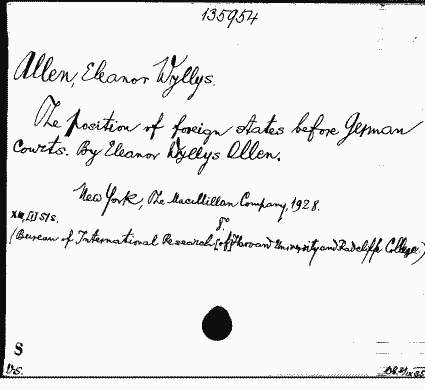 135954
Allen, Eleanor Wyllys.
The position of foreign states before German
Courts. By Eleanor Wyllys Allen.
New York, The Macmillan Company, 1928.
8°.
(Bureau of International Research [of] Harvard University and Radcliffe College.)
S